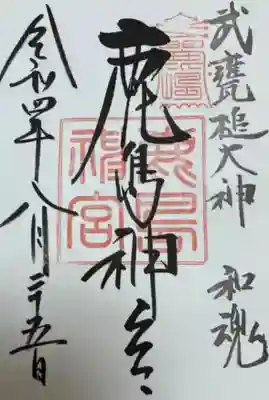 武甕槌大神　和魂
鹿島神宮
鹿島
神宮
令和四年八月二十五日